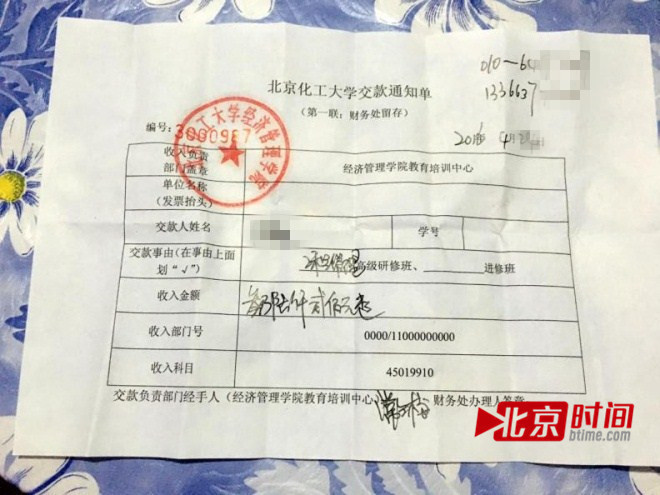 010-64
1336637
北京化工大学交款通知单
(第一联:财务处留存)
编号:3000987
工大学经济管理学院
收入负责
部门盖章
经济管理学院教育培训中心
单位名称
(发票抬头)
交款人姓名
学号
交款事由(在事由上面
划“√”)
高级研修班、 进修班
收入金额
陆仟贰佰元
收入部门号
0000/11000000000
收入科目
45019910
交款负责部门经手人(经济管理学院教育培训中心
财务处办理人签章
北京时间
btime.com